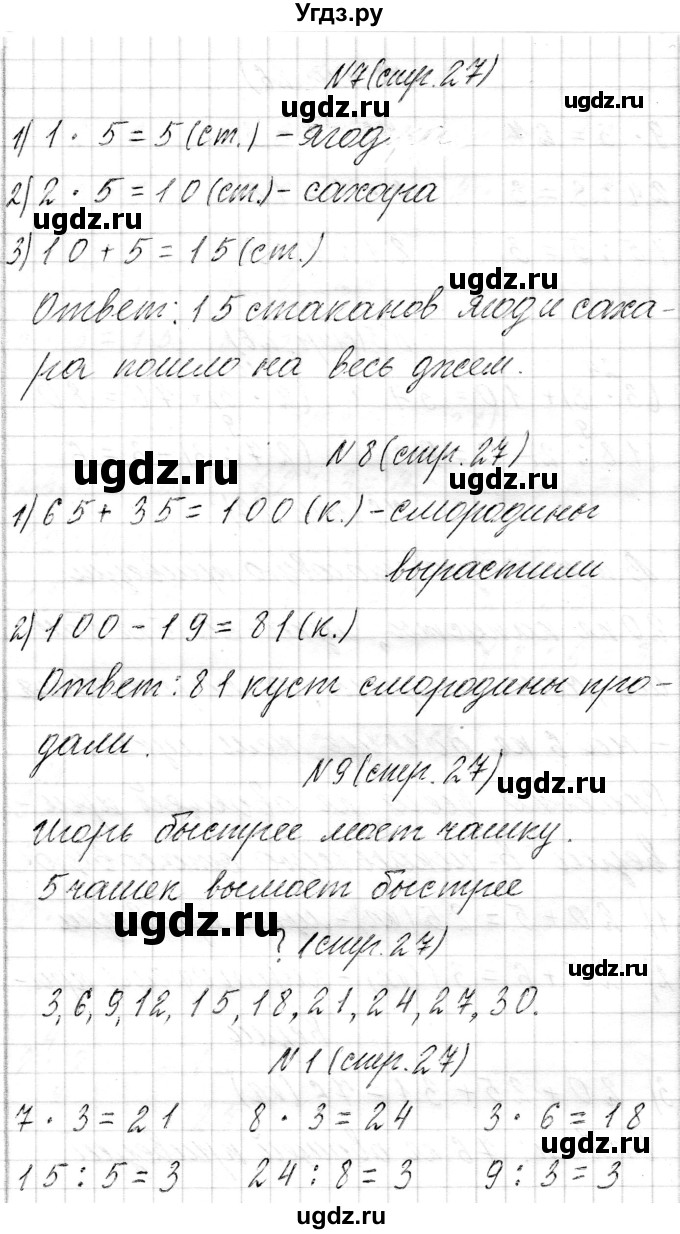 Угдз.ру
№7(стр.27)
ugdz.ru
ugdz.ru
1) 1 · 5 = 5 (ст.) - ягод
2) 2 · 5 = 10 (ст.) - сахара
ugdz.ru
3) 10 + 5 = 15 (ст.)
ugdz.ru
Ответ: 15 стаканов ягод и саха-
ра пошло на весь джем.
№8(стр.27)
ugdz.ru
ugdz.ru
1) 65 + 35 = 100 (к.) - смородины
вырастили
2) 100 - 19 = 81 (к.)
Ответ: 81 куст смородины про-
дали.
№9(стр.27)
ugdz.ru
Игорь быстрее моет чашку.
5 чашек вымоет быстрее
ugdz.ru
? (стр.27)
ugdz.ru
3, 6, 9, 12, 15, 18, 21, 24, 27, 30.
№1(стр.27)
7 · 3 = 21 8 · 3 = 24 3 · 6 = 18
ugdz.ru
15 : 5 = 3 24 : 8 = 3 9 : 3 = 3
ugdz.ru